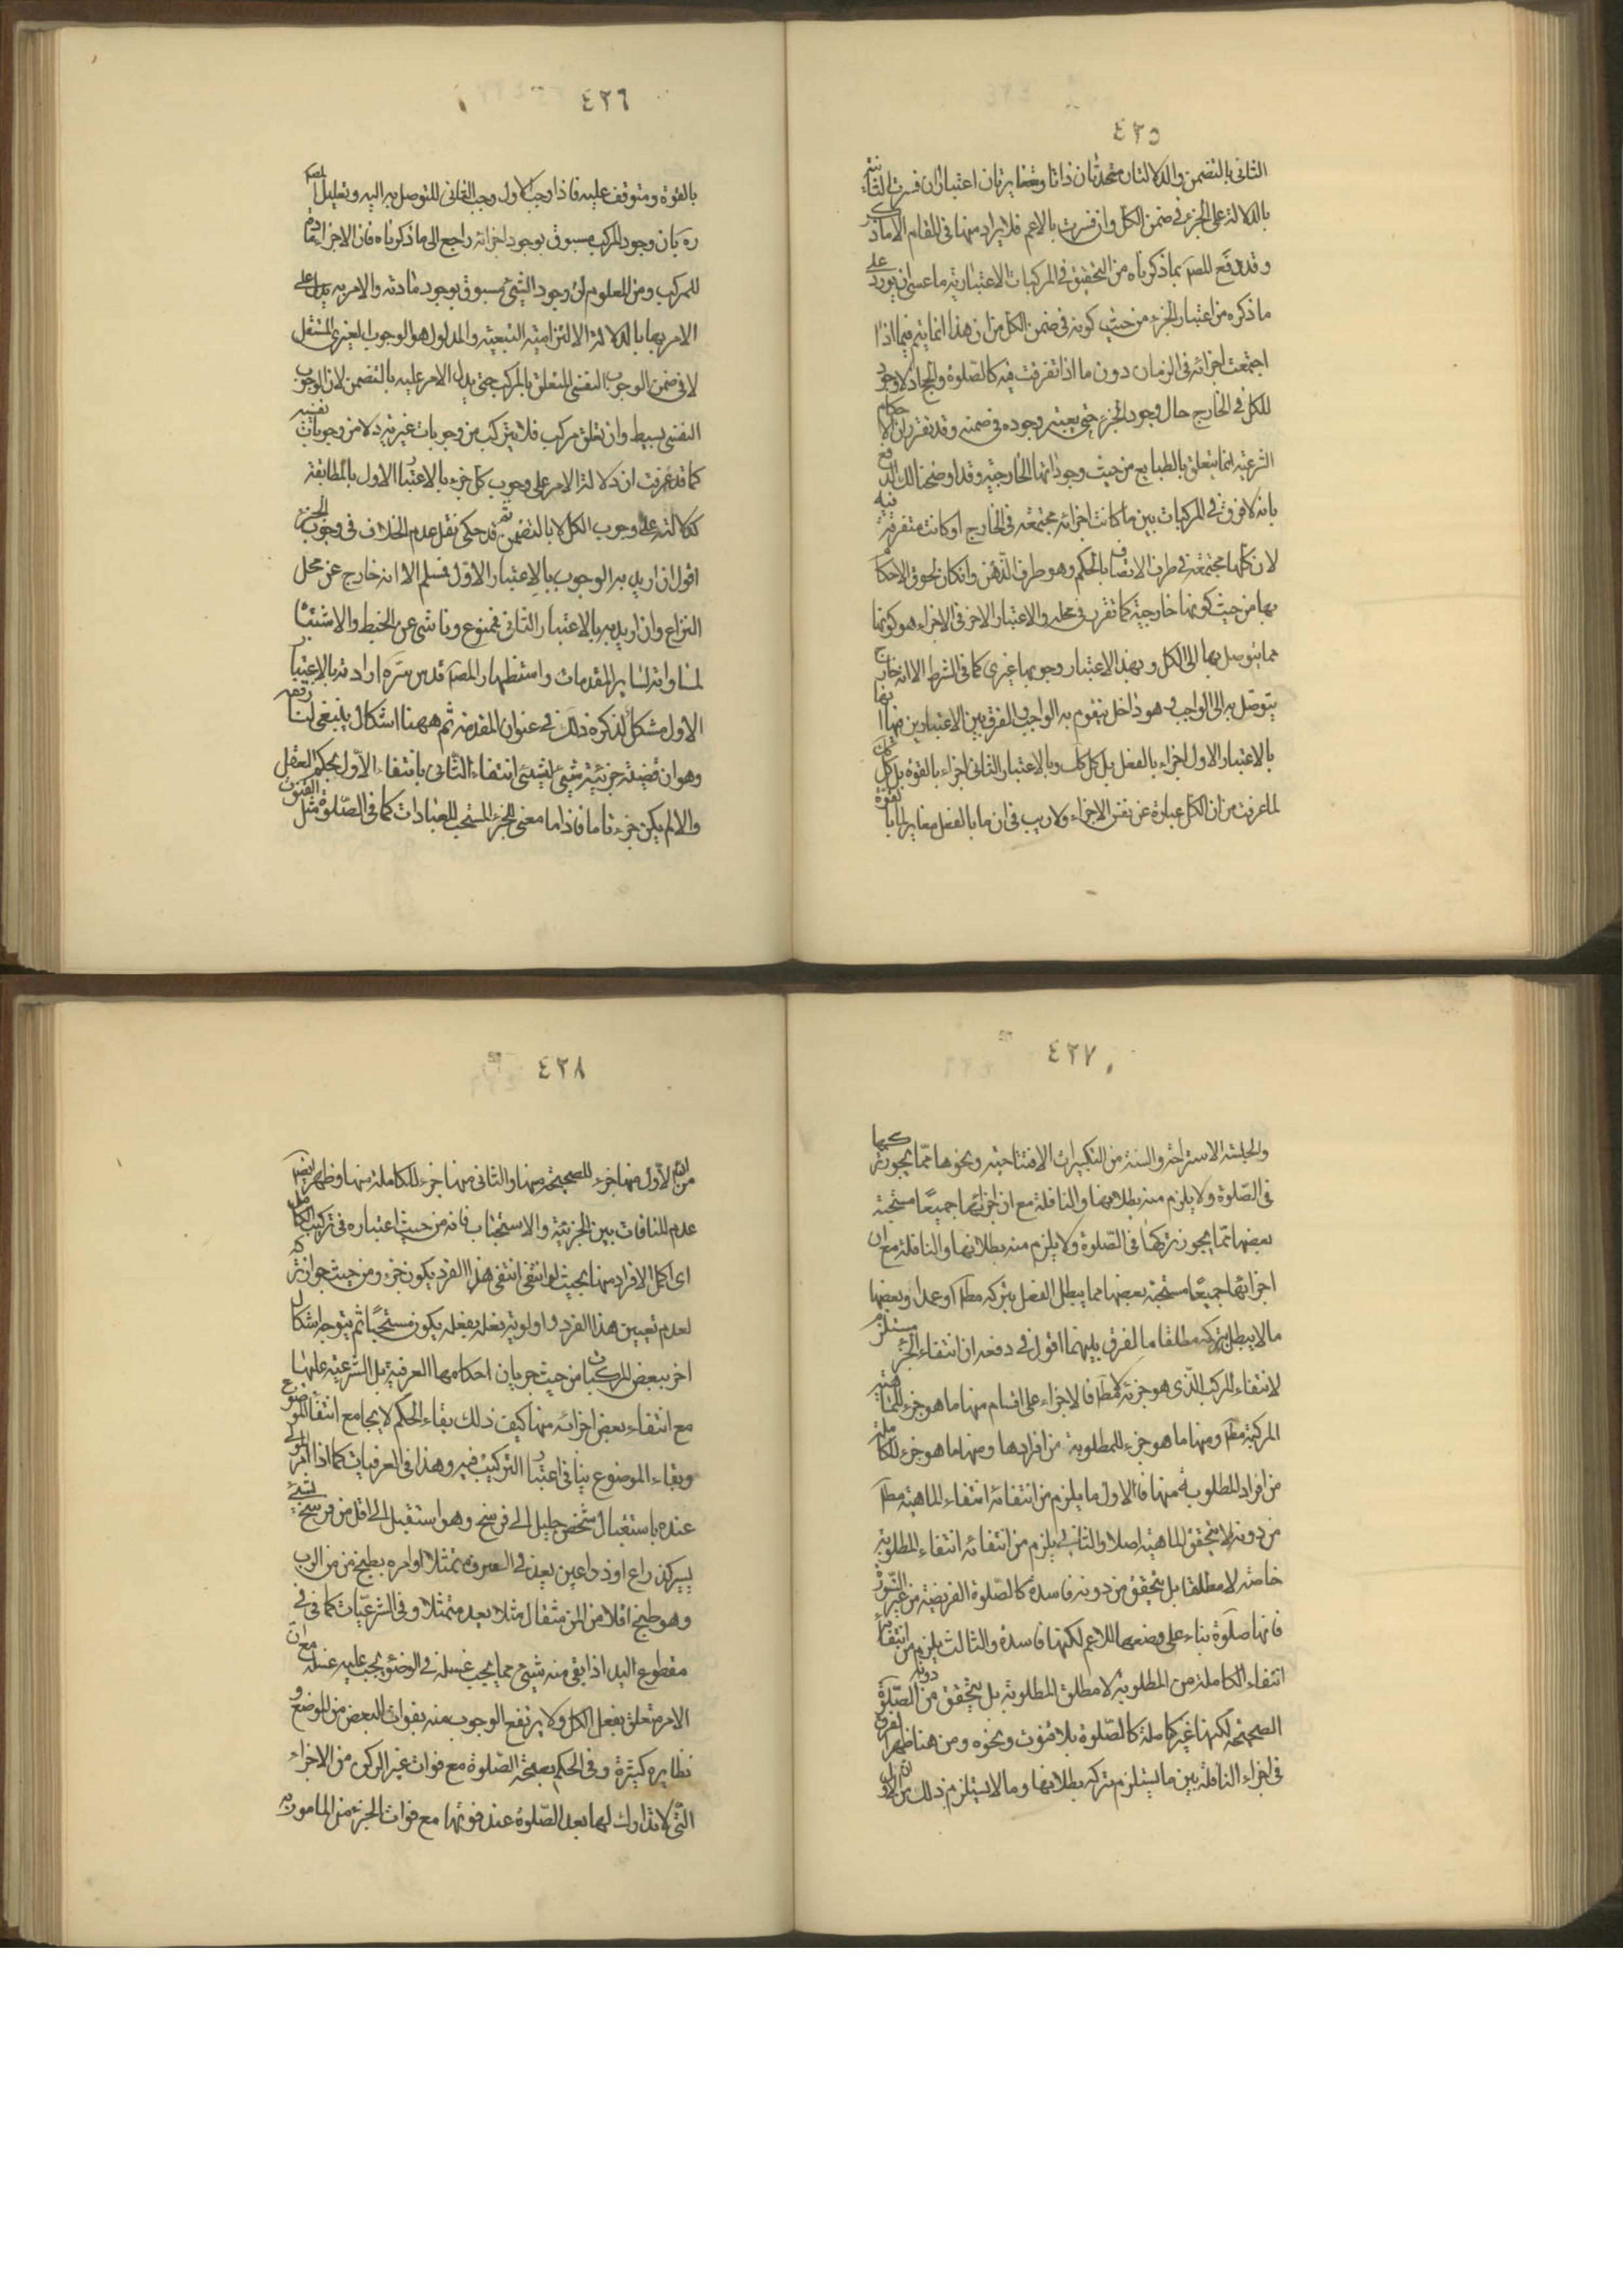 ٤٢٥
الثانى بالتضمن والدلالتان متحدتان ذاتا ومتغايرتان اعتبارا ان فسرت الثانية
بالدلالة على الجزء فى ضمن الكل وان فسرت بالاعم فلا يراد منها فى المقام الا ما ذكر
وقد دفع المصر بما ذكرناه من التحقيق فى المركبات الاعتبارية ما عسى ان يورد على
ما ذكره من اعتبار الجزء من حيث كونه فى ضمن الكل من ان هذا انما يتم فيما اذا
اجتمعت اجزائه فى الزمان دون ما اذا تفرقت فيه كالصلوة والحج اذ لا وجود
للكل فى الخارج حال وجود الجزء حتى يعتبر وجوده فى ضمنه وقد تقرر ان الاحكام
الشرعية انما يتعلق بالطبايع من حيث وجوداتها الخارجية وقد اوضحنا لك الدفع
بانه لا فرق فى المركبات بين ما كانت اجزائه مجتمعة فى الخارج او كانت متفرقة فيه
لان كلها مجتمعة فى ظرف الاتصاف بالحكم وهو ظرف الذهن وان كان لحوق الاحكام
بها من حيث كونها خارجية كما تقرر فى محله والاعتبار الاخر فى الاجزاء هو كونها
مما يتوصل بها الى الكل وبهذا الاعتبار وجوبها غيرى كما فى الشرط الا انه خارج
يتوصل به الى الواجب وهو داخل يتقوم به الواجب والفرق بين الاعتبارين انها
بالاعتبار الاول اجزاء بالفعل بل كل كك وبالاعتبار الثانى اجزاء بالقوة بل كل كك
لما عرفت من ان الكل عبارة عن نفس الاجزاء ولا ريب فى ان ما بالفعل مغاير لما بالقوة
٤٢٦
بالقوة ومتوقف عليه فاذا وجب الاول وجب الثانى للتوصل به اليه وتعليل المصر
ره بان وجود المركب مسبوق بوجود اجزائه راجع الى ما ذكرناه فان الاجزاء مادة
للمركب ومن المعلوم ان وجود الشىء مسبوق بوجود مادته والامر به يدل على
الامر بها بالدلالة الالتزامية التبعية والمدلول هو الوجوب الغيرى المستقل
لا فى ضمن الوجوب النفسى المتعلق بالمركب حتى يدل الامر عليه بالتضمن لان الوجوب
النفسى بسيط وان تعلق بمركب فلا يتركب من وجوبات غيرية ولا من وجوبات نفسية
كما قد عرفت ان دلالة الامر على وجوب كل جزء بالاعتبار الاول بالمطابقة
كدلالته على وجوب الكل لا بالتضمن ثم قد حكى نقل عدم الخلاف فى وجوب الجزء
اقول ان اريد به الوجوب بالاعتبار الاول فمسلم الا انه خارج عن محل
النزاع وان اريد به بالاعتبار الثانى فممنوع وناشى عن الخبط والاشتباه
لمساواته لساير المقدمات واستظهار المصر قدس سره ارادته بالاعتبار
الاول مشكل لذكره ذلك فى عنوان المقدمة ثم ههنا اشكال ينبغى لنا رفعه
وهو ان قضية جزئية شىء لشىء انتفاء الثانى بانتفاء الاول بحكم العقل
والا لم يكن جزء تاما فاذا ما معنى الجزء المستحب للعبادات كما فى الصلوة مثل القنوت
٤٢٧
والجلسة الاستراحة والستة من التكبيرات الافتتاحية ونحوها مما يجوز تركها
فى الصلوة ولا يلزم منه بطلانها والنافلة مع ان اجزائها جميعا مستحبة
بعضها مما يجوز تركها فى الصلوة ولا يلزم منه بطلانها والنافلة مع ان
اجزائها جميعا مستحبة بعضها مما يبطل الفعل بتركه مطا او عمدا وبعضها
ما لا يبطل بتركه مطلقا ما الفرق بينهما اقول فى دفعه ان انتفاء الجزء مستلزم
لانتفاء المركب الذى هو جزئه لا مطا فالاجزاء على اقسام منها ما هو جزء للماهية
المركبة مطا ومنها ما هو جزء للمطلوبة من افرادها ومنها ما هو جزء للكاملة
من افراد المطلوبة منها فالاول ما يلزم من انتفائه انتفاء الماهية مطا
من دونه لا يتحقق الماهية اصلا والثانى يلزم من انتفائه انتفاء المطلوبة
خاصة لا مطلقا بل يتحقق من دونه فاسدة كالصلوة الفريضة من غير السورة
فانها صلوة بناء على وضعها للاعم لكنها فاسدة والثالث يلزم من انتفائه
انتفاء الكاملة من المطلوبة لا مطلق المطلوبة بل يتحقق من دونه الصلوة
الصحيحة لكنها غير كاملة كالصلوة بلا قنوت ونحوه ومن هنا ظهر الفرق
فى اجزاء النافلة بين ما يستلزم تركه بطلانها وما لا يستلزم ذلك من ان الاول
٤٢٨
من ان الاول منها جزء للصحيحة منها والثانى منها جزء للكاملة منها وظهر ايضا
عدم المنافات بين الجزئية والاستحباب فانه من حيث اعتباره فى تركيب الكامل
اى اكمل الافراد منها بحيث لو انتفى انتفى هذا الفرد يكون جزء ومن حيث جواز تركه
لعدم تعيين هذا الفرد واولوية فعله بفعله يكون مستحبا ثم يتوجه اشكال
اخر ببعض المركبات من حيث جريان احكامها العرفية بل الشرعية عليها
مع انتفاء بعض اجزائه منها كيف ذلك بقاء الحكم لا يجامع انتفاء الموضوع
وبقاء الموضوع ينافى اعتبار التركيب فيه وهذا فى العرفيات كما اذا امر المولى
عنده باستقبال شخص جليل الى فرسخ وهو استقبل الى اقل من فرسخ بشىء
يسير كذراع او ذراعين يعد فى العرف ممتثلا او امره بطبخ من من الرب
وهو طبخ اقلا من المن مثقال مثلا يعد ممتثلا وفى الشرعيات كما فى
مقطوع اليد اذا بقى منه شىء مما يجب غسله فى الوضوء يجب عليه غسله مع ان
الامر متعلق بفعل الكل ولا يرتفع الوجوب منه بفوات البعض من الموضع و
نظايره كثيرة وفى الحكم بصحة الصلوة مع فوات غير الركن من الاجزاء
التى لا تدارك لها بعد الصلوة عند فوتها مع فوات الجزء من المامور به